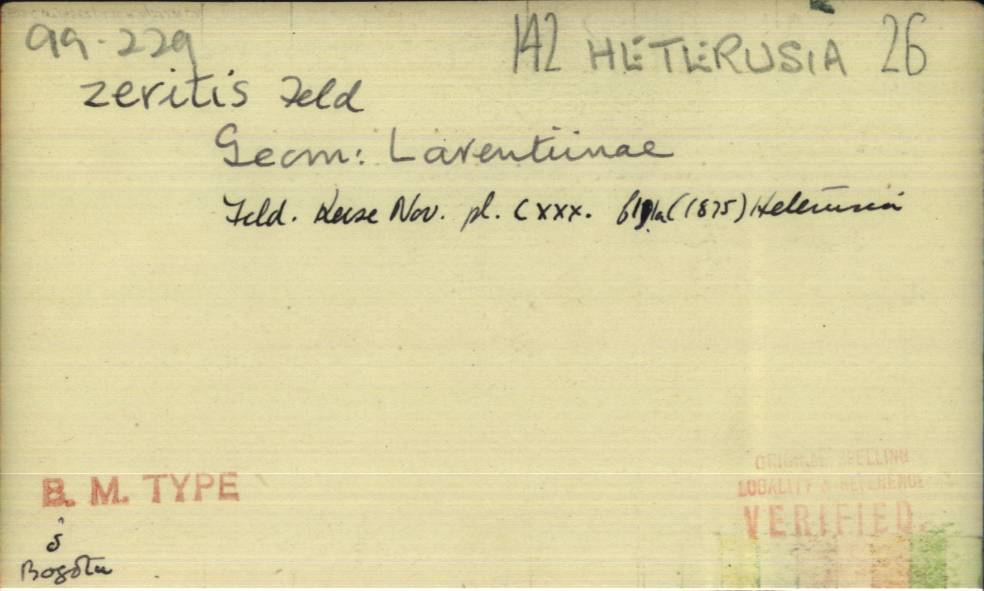 99-229 142 HETERUSIA 26
zeritis Feld
Geom: Larentiinae
Feld. Reise Nov. pl. CXXX. (1875) Heterusia
B. M. TYPE
ORIGINAL SPELLING
LOCALITY & REFERENCE
VERIFIED
Bogota